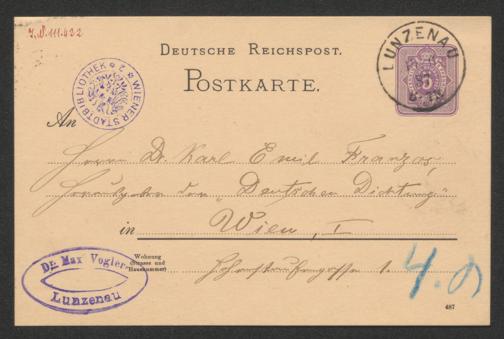 J.N. 111.432
DEUTSCHE REICHSPOST.
POSTKARTE.
LUNZENAU
5
WIENER STADTBIBLIOTHEK
An
Herrn Dr. Karl Emil Franzos,
Herausgeber der „Deutschen Dichtung“
in Wien, I
Wohnung
(Strasse und
Hausnummer)
Hohenstaufengasse 1.
Dr. Max Vogler
Lunzenau
487